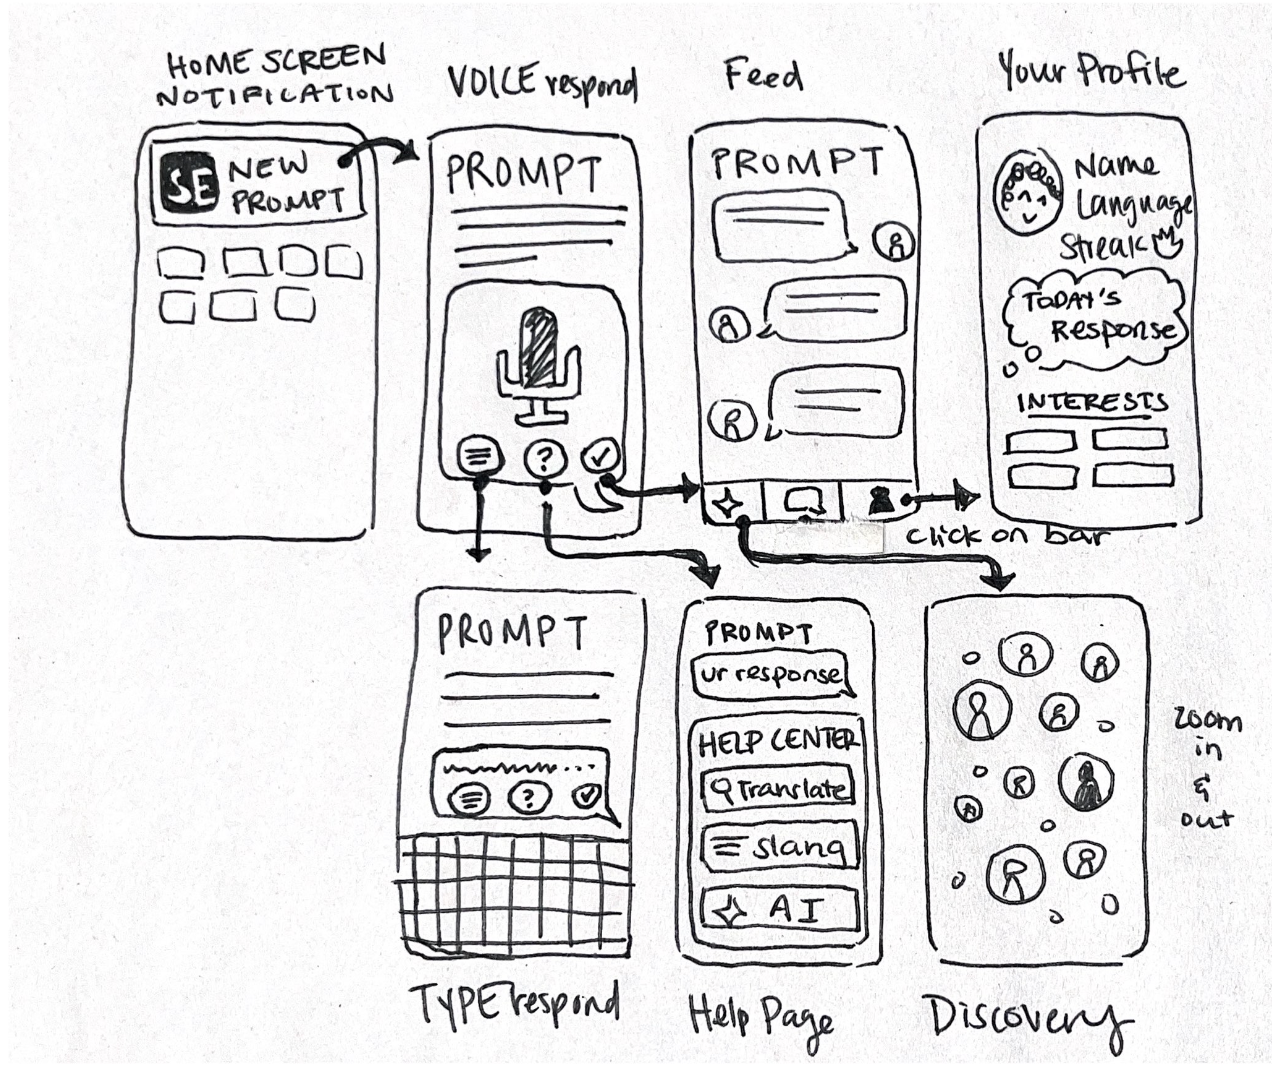 HOME SCREEN
NOTIFICATION
SE
NEW
PROMPT
VOICE respond
PROMPT
?
Feed
PROMPT
Your Profile
Name
Language
Streak
TODAY'S
Response
INTERESTS
click on bar
PROMPT
?
TYPE respond
PROMPT
ur response
HELP CENTER
Translate
slang
AI
Help Page
zoom
in
&
out
Discovery